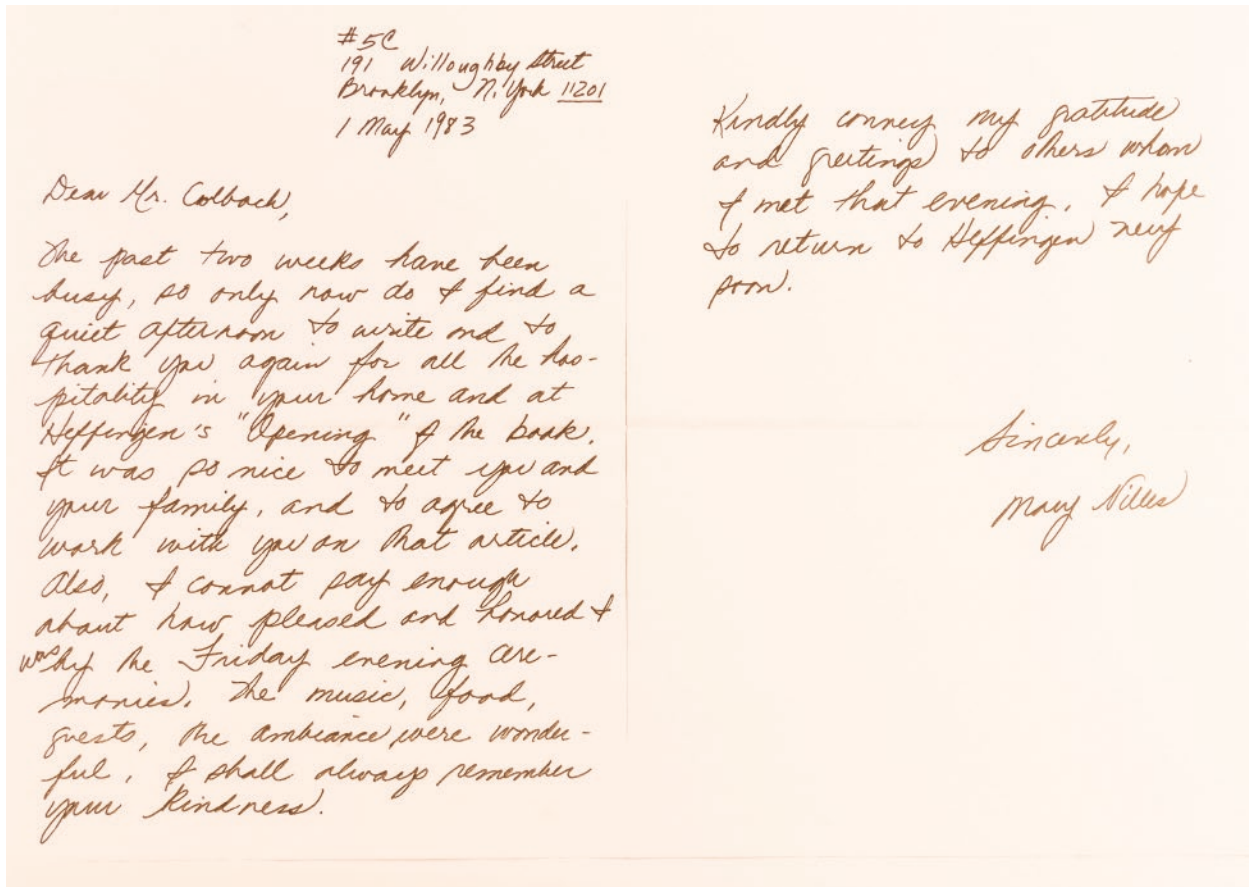 #5C
191 Willoughby Street
Brooklyn, N. York 11201
1 May 1983
Dear Mr. Colbach,
The past two weeks have been
busy, so only now do I find a
quiet afternoon to write and to
thank you again for all the hos-
pitality in your home and at
Heffingen's "Opening" of the book.
It was so nice to meet you and
your family, and to agree to
work with you on that article.
Also, I cannot say enough
about how pleased and honored I
was by the Friday evening cere-
monies. The music, food,
guests, the ambiance were wonder-
ful. I shall always remember
your kindness.
Kindly convey my gratitude
and greetings to others whom
I met that evening. I hope
to return to Heffingen very
soon.
Sincerely,
Mary Nilles